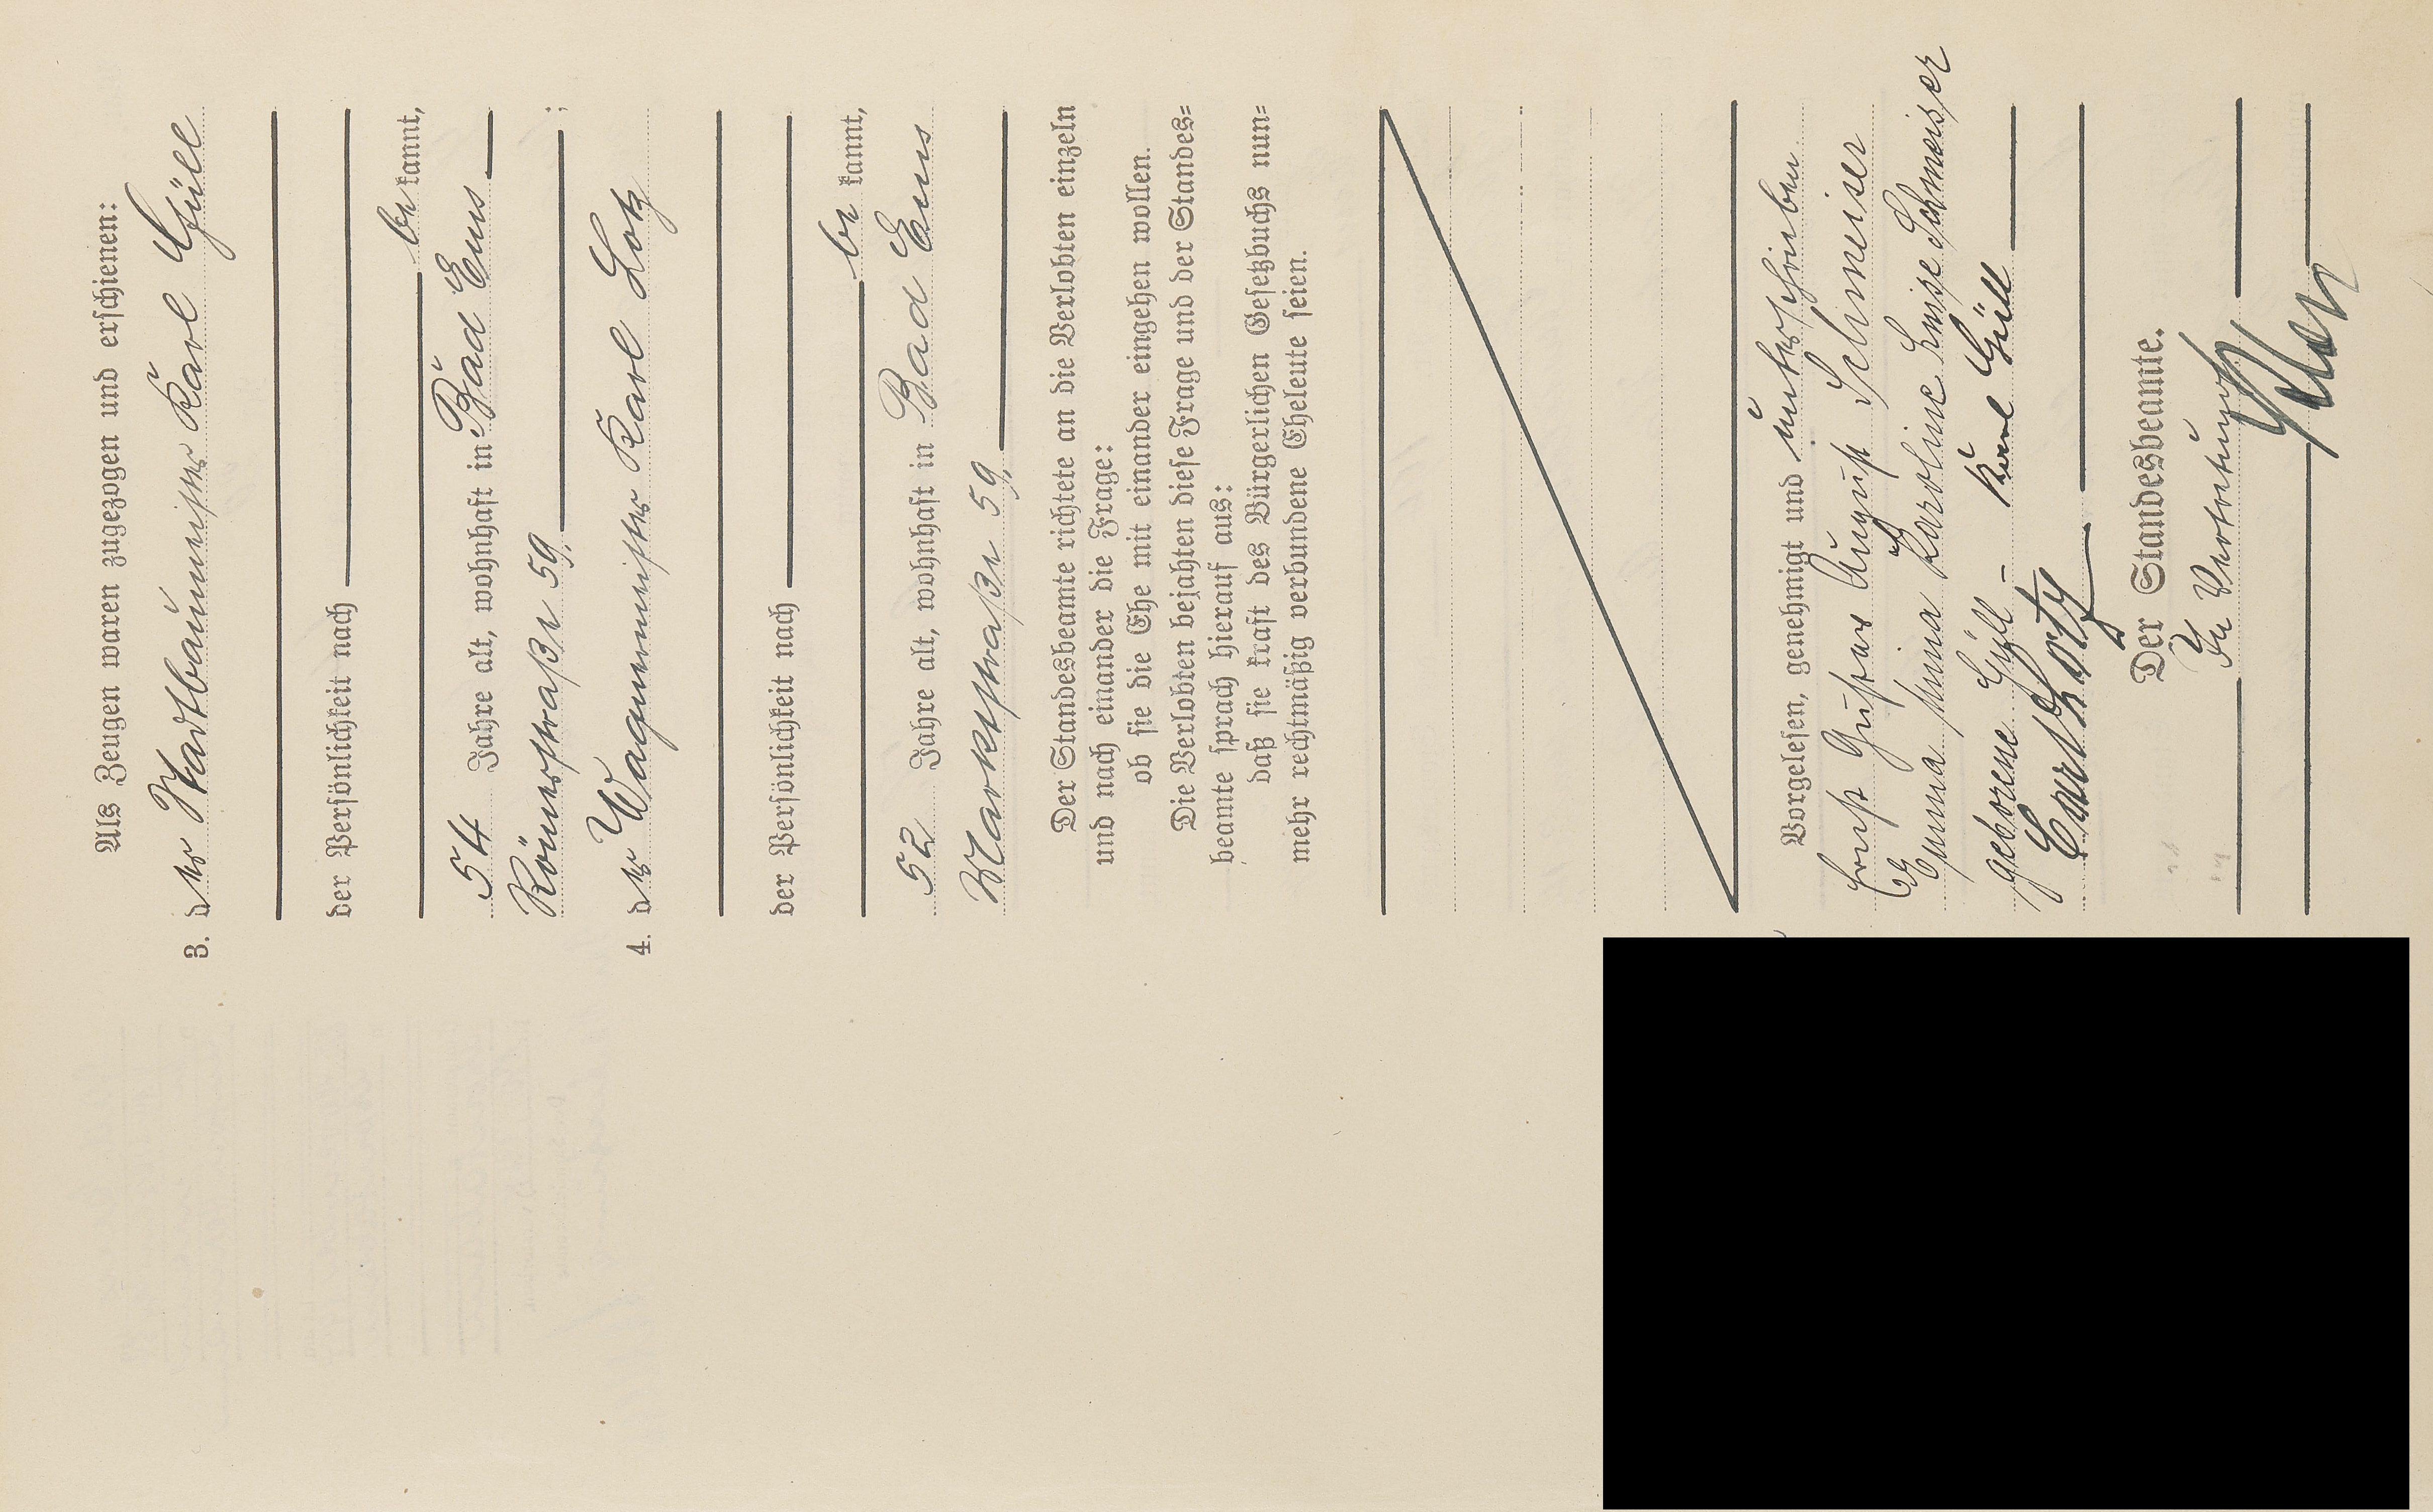 Als Zeugen waren zugezogen und erschienen:
3. der Stadtbaumeister Karl Güll
der Persönlichkeit nach
be kannt,
54 Jahre alt, wohnhaft in Bad Ems
Römerstraße 59. ;
4. der Wagnermeister Karl Lotz
der Persönlichkeit nach
be kannt,
52 Jahre alt, wohnhaft in Bad Ems
Marktstraße 59.
Der Standesbeamte richtete an die Verlobten einzeln
und nach einander die Frage:
ob sie die Ehe mit einander eingehen wollen.
Die Verlobten bejahten diese Frage und der Standes=
beamte sprach hierauf aus:
daß sie kraft des Bürgerlichen Gesetzbuchs nun=
mehr rechtmäßig verbundene Eheleute seien.
Vorgelesen, genehmigt und unterschrieben
Ernst Gustav August Schmeiser
Emma Anna Karoline Luise Schmeisser
geborene Güll – Karl Güll
Carl Lotz
Der Standesbeamte.
In Vertretung